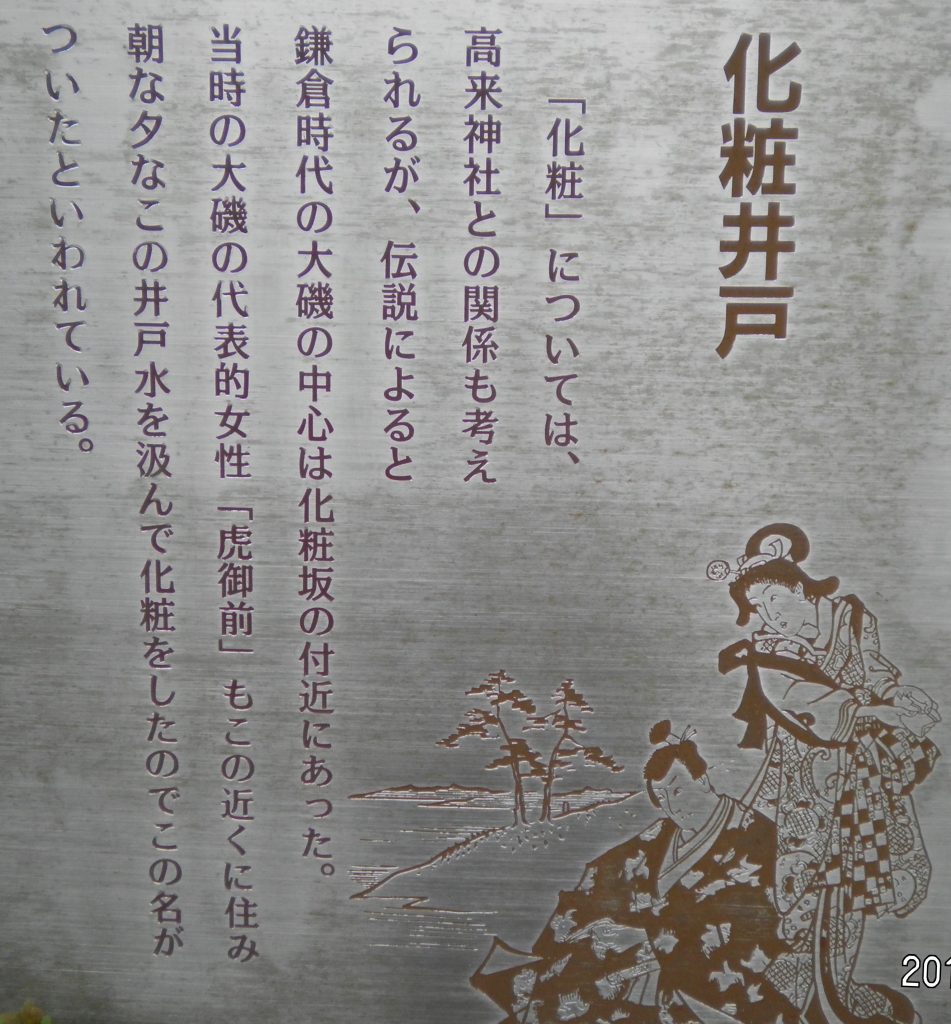 化粧井戸
「化粧」については、
高来神社との関係も考え
られるが、伝説によると
鎌倉時代の大磯の中心は化粧坂の付近にあった。
当時の大磯の代表的女性「虎御前」もこの近くに住み
朝な夕なこの井戸水を汲んで化粧をしたのでこの名が
ついたといわれている。
201